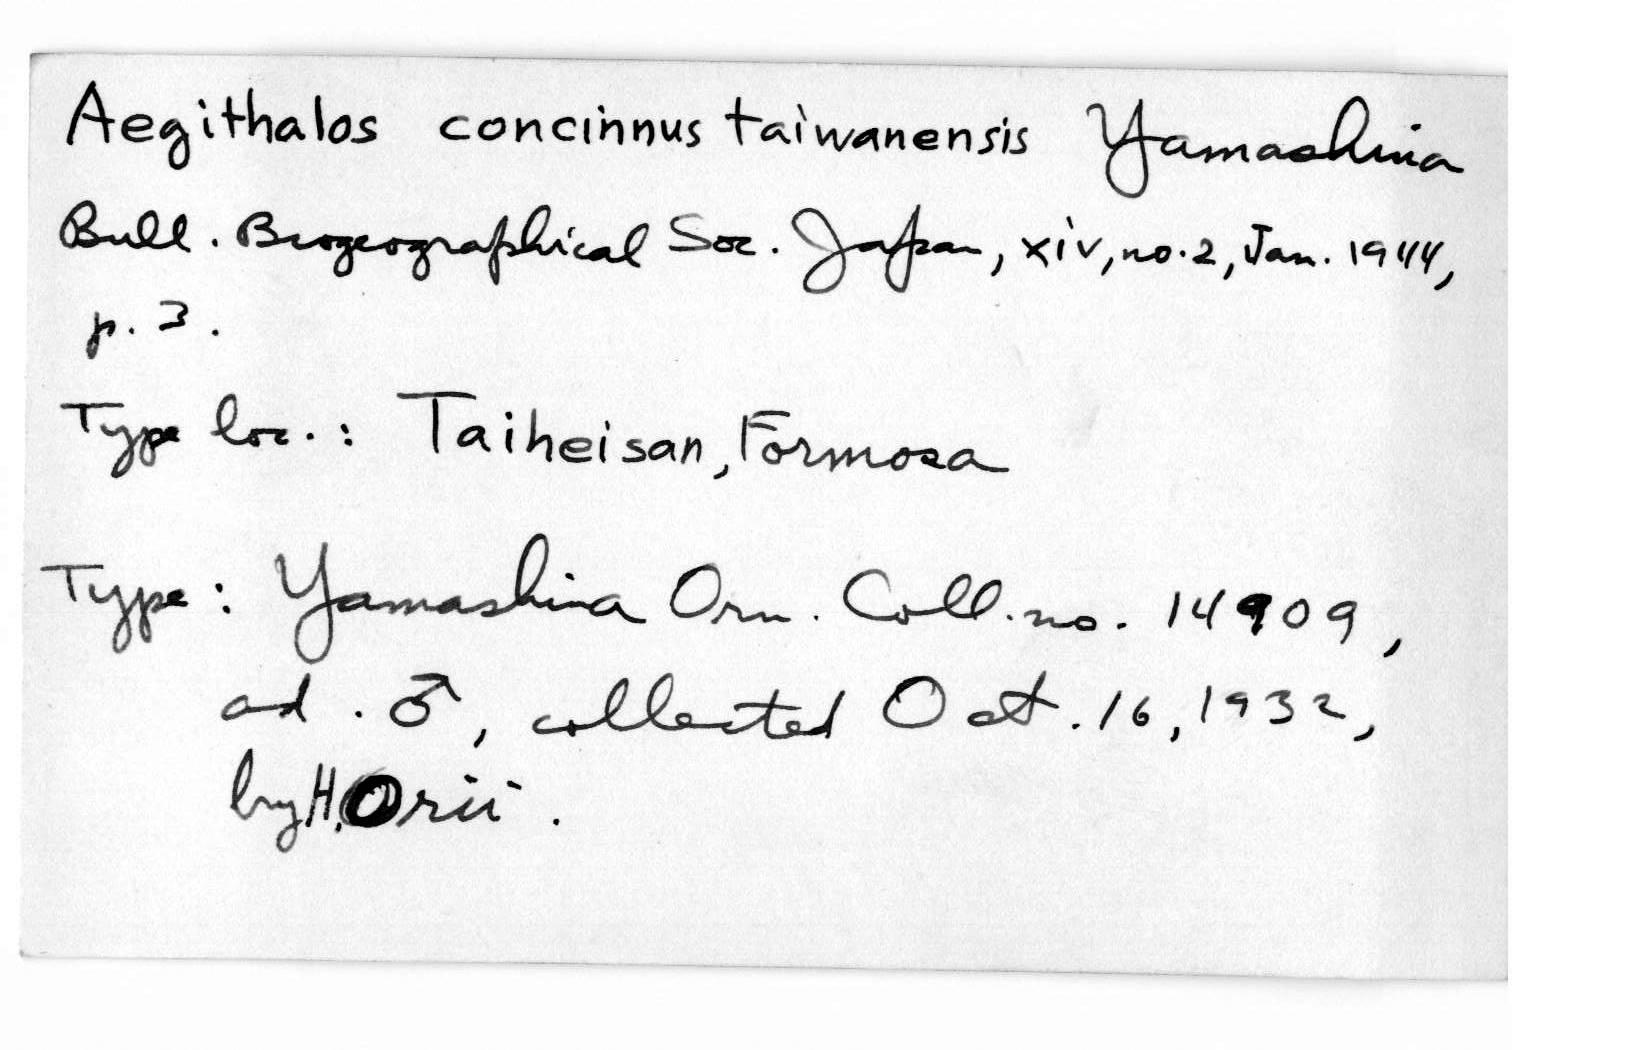 Aegithalos concinnus taiwanensis Yamashina
Bull. Biogeographical Soc. Japan, xiv, no. 2, Jan. 1944,
p. 3.
Type loc.: Taiheisan, Formosa
Type: Yamashina Orn. Coll. no. 14909,
ad. ♂, collected Oct. 16, 1932,
by H. Orii.